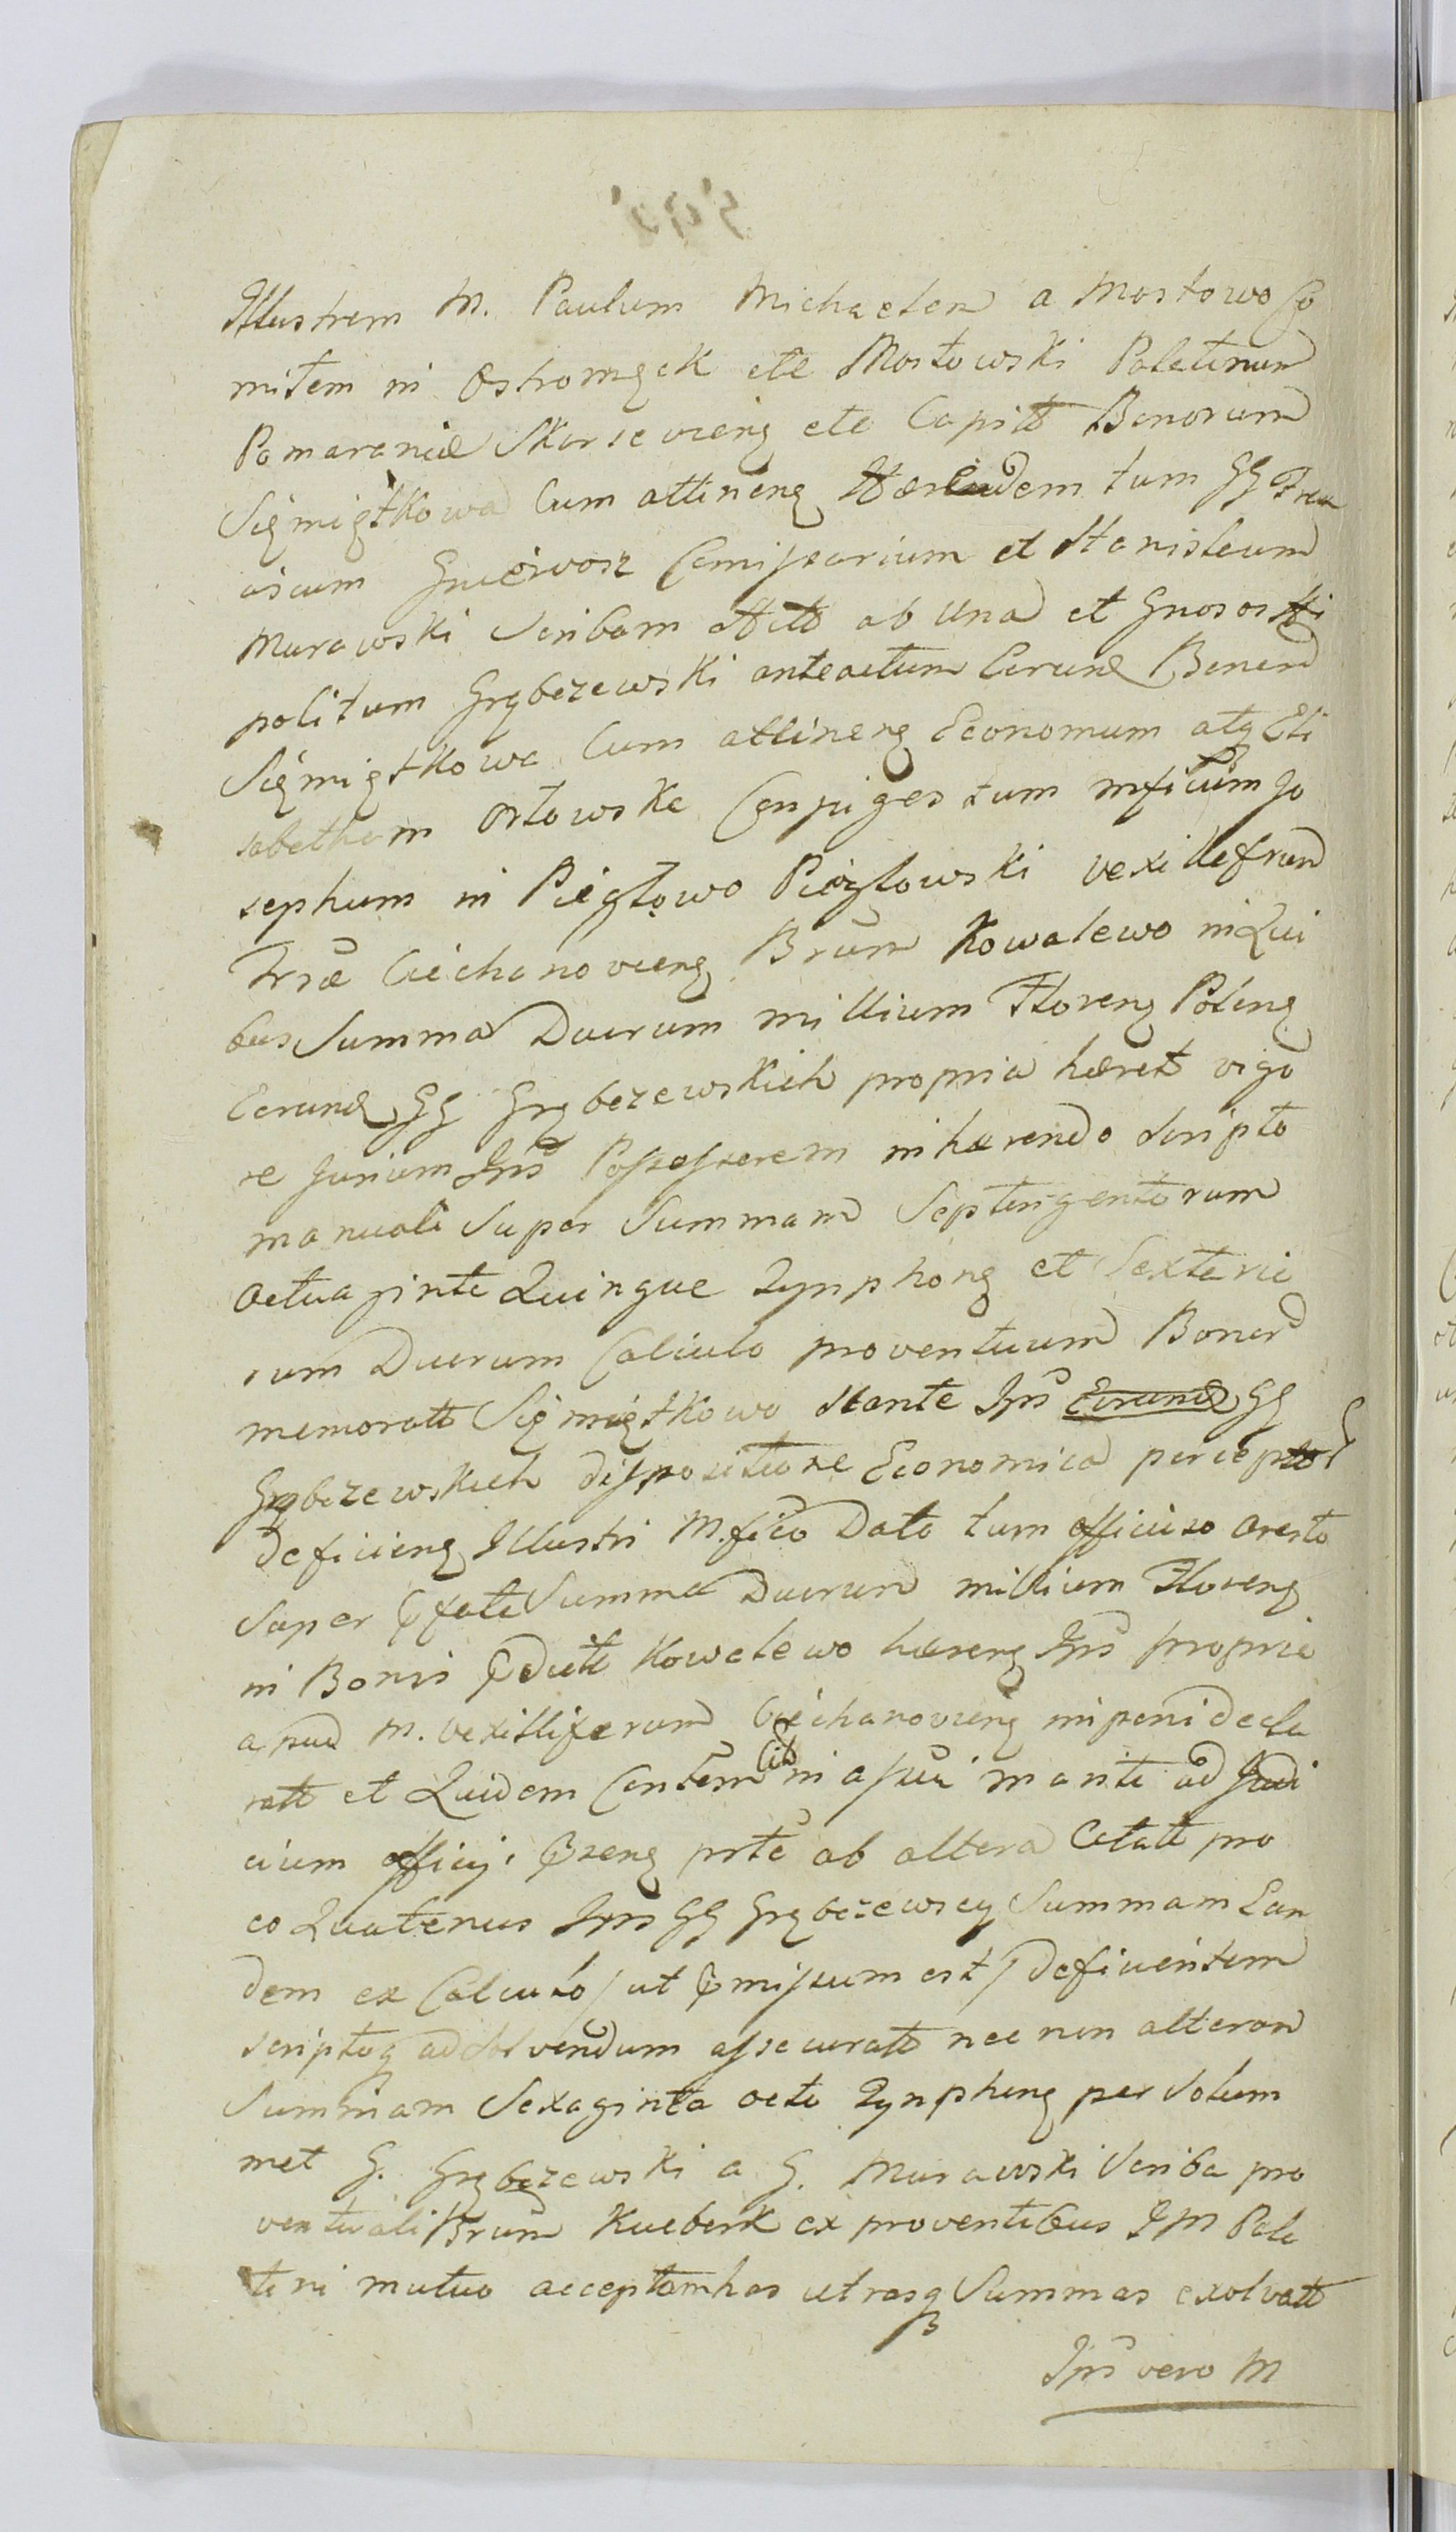 Illustrem M. Paulum Michaelem a Mostowo Co
mitem in Ostromęck etc Mostowski Palatinum
Pomaraniæ Skarsevieng etc Capitt Bonorum
Siemiątkowo Cum attineng Hæredem tum GG Fran
ciscum Gniewosz Comissarium et Stanisleum
Murawski Scribam Actt ab Una et Gnosos Hi
politum Grębczewski anteactum Eorund Bonor
Siemiątkowo Cum attineng Economum atq Eli
sabetham Orłowska Conjuges tum mficum Jo
sephum in Piegłowo Piegłowski vexillefrum
Trræ Ciechanovieng Brum Kowalewo in Qui
bus Summa Duorum millium Floreng Poloneng
Eorund GG Grębczewskich propria hæret vigo
re Jurium Ipse Possessorem inhærendo Scripto
manuali Super Summam Septingentorum
Octuaginta Quinque Tynphong et Sexterio
rum Duorum Calculo proventuum Bonor
memoratt Siemiątkowo stante Ips Eorund GG
Grębczewskich dispositione Economica percept
deficieng Illustri M.fico Dato tum officioso aresto
Super pfata Summa Duorum millium Floreng
in Bonis pdictt Kowalewo hæreng Ips propria
apud M. vexilliferum Ciechanovieng imponi decla
ratt et Quidem Conterm in assū mante ad Judi
cium officij pseng prte ab altera Citatt pro
eo Quatenus Ipsi GG Grębczewscy Summam Ean
dem ex Calculo / ut pmissum est / deficientem
scriptoq ad solvendum assecuratt nec non alteram
Summam Sexaginta octo Tynphong per Solum
met G. Grębczewski a G. Murawski Scriba pro
ventuali Brum Kucbork ex proventibus JM Pala
tini mutuo acceptam has utrasq Summas exolvatt
Ips vero M